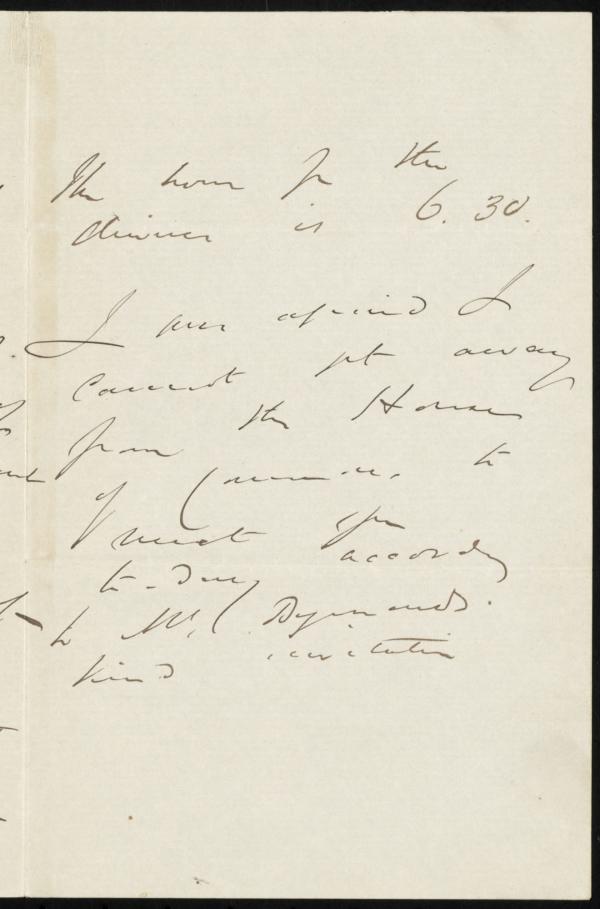 The hour for the
dinner is 6.30.
I am afraid I
cannot get away
from the House
of Commons to
meet you
to-day according
to Mr. Dymond's
kind invitation